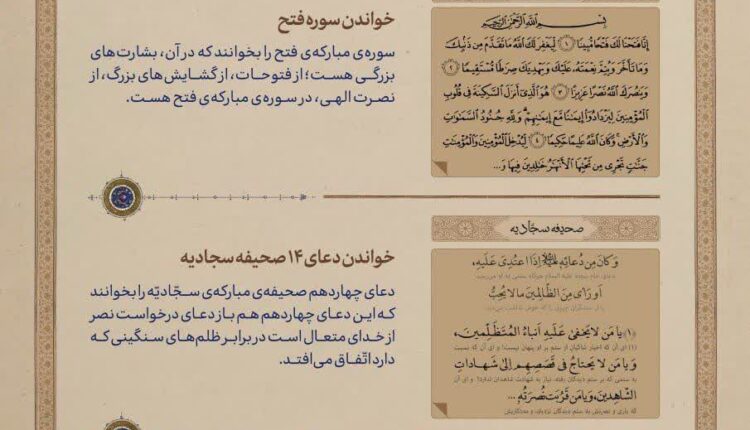 خواندن سوره فتح
سوره‌ی مبارکه‌ی فتح را بخوانند که در آن، بشارت‌های
بزرگی هست؛ از فتوحات، از گشایش‌های بزرگ، از
نصرت الهی، در سوره‌ی مبارکه‌ی فتح هست.
بِسْمِ اللَّهِ الرَّحْمَٰنِ الرَّحِيمِ
إِنَّا فَتَحْنَا لَكَ فَتْحًا مُبِينًا ﴿١﴾ لِيَغْفِرَ لَكَ اللَّهُ مَا تَقَدَّمَ مِنْ ذَنْبِكَ
وَمَا تَأَخَّرَ وَيُتِمَّ نِعْمَتَهُ عَلَيْكَ وَيَهْدِيَكَ صِرَاطًا مُسْتَقِيمًا ﴿٢﴾
وَيَنْصُرَكَ اللَّهُ نَصْرًا عَزِيزًا ﴿٣﴾ هُوَ الَّذِي أَنْزَلَ السَّكِينَةَ فِي قُلُوبِ
الْمُؤْمِنِينَ لِيَزْدَادُوا إِيمَانًا مَعَ إِيمَانِهِمْ وَلِلَّهِ جُنُودُ السَّمَاوَاتِ
وَالْأَرْضِ وَكَانَ اللَّهُ عَلِيمًا حَكِيمًا ﴿٤﴾ لِيُدْخِلَ الْمُؤْمِنِينَ وَالْمُؤْمِنَاتِ
جَنَّاتٍ تَجْرِي مِنْ تَحْتِهَا الْأَنْهَارُ خَالِدِينَ فِيهَا وَ...
خواندن دعای ۱۴ صحیفه سجادیه
دعای چهاردهم صحیفه‌ی مبارکه‌ی سجّادیّه را بخوانند
که این دعای چهاردهم هم باز دعای درخواست نصر
از خدای متعال است در برابر ظلم‌های سنگینی که
دارد اتّفاق می‌افتد.
صحیفه سجّادیه
وَ كَانَ مِن دُعَائِهِ إِذَا اعْتُدِيَ عَلَيْهِ،
أَوْ رَأَى مِنَ الظَّالِمِينَ مَا لَا يُحِبُّ
(۱) يَا مَن لَا يَخْفَى عَلَيْهِ أَنْبَاءُ الْمُتَظَلِّمِينَ،
وَ يَا مَن لَا يَحْتَاجُ فِي قَصَصِهِمْ إِلَى شَهَادَاتِ
الشَّاهِدِينَ، وَ يَا مَن قَرُبَتْ نُصْرَتُهُ ...